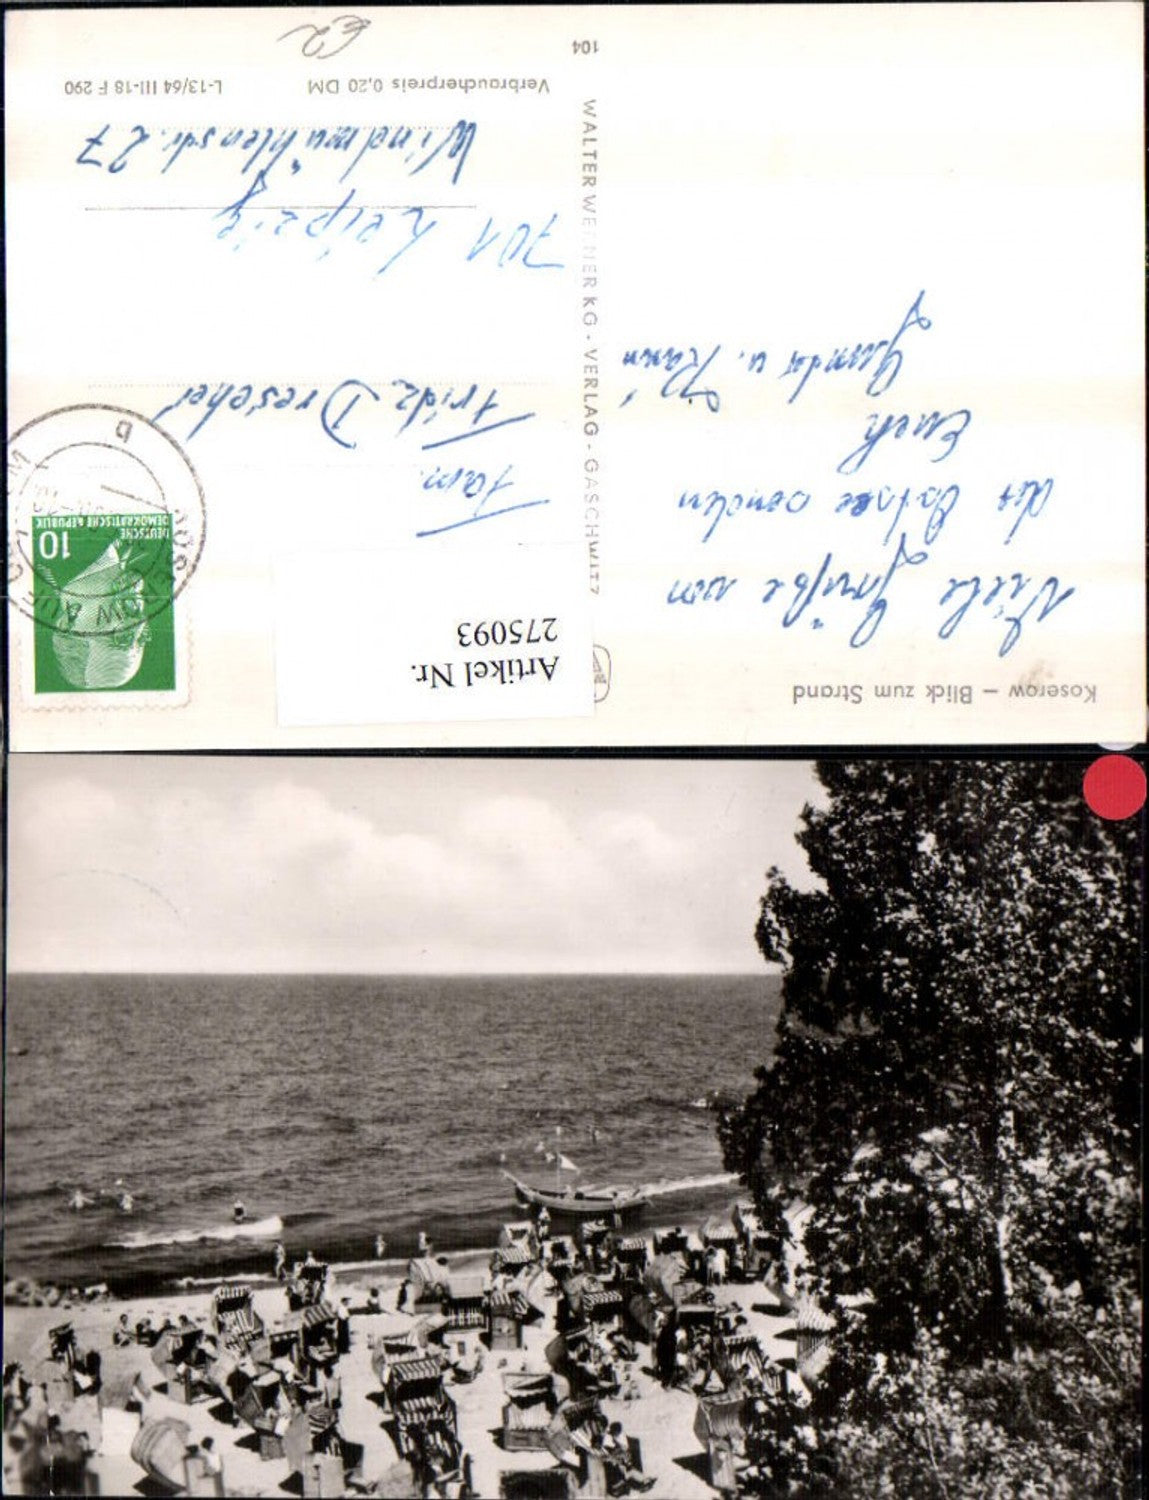 Koserow – Blick zum Strand
Viele Grüße von
der Ostsee senden
Euch
Gunda u.
WALTER WERNER KG · VERLAG · GASCHWITZ
104
Artikel Nr.
275093
DEUTSCHE
DEMOKRATISCHE REPUBLIK
10
KOSEROW AUF
b
Fam.
Fritz Drescher
701 Leipzig
Windmühlenstr. 27
Verbraucherpreis 0,20 DM
L-13/64 III-18 F 290
€2